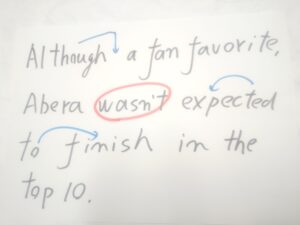 Although a fan favorite,
Abera wasn't expected
to finish in the
top 10.